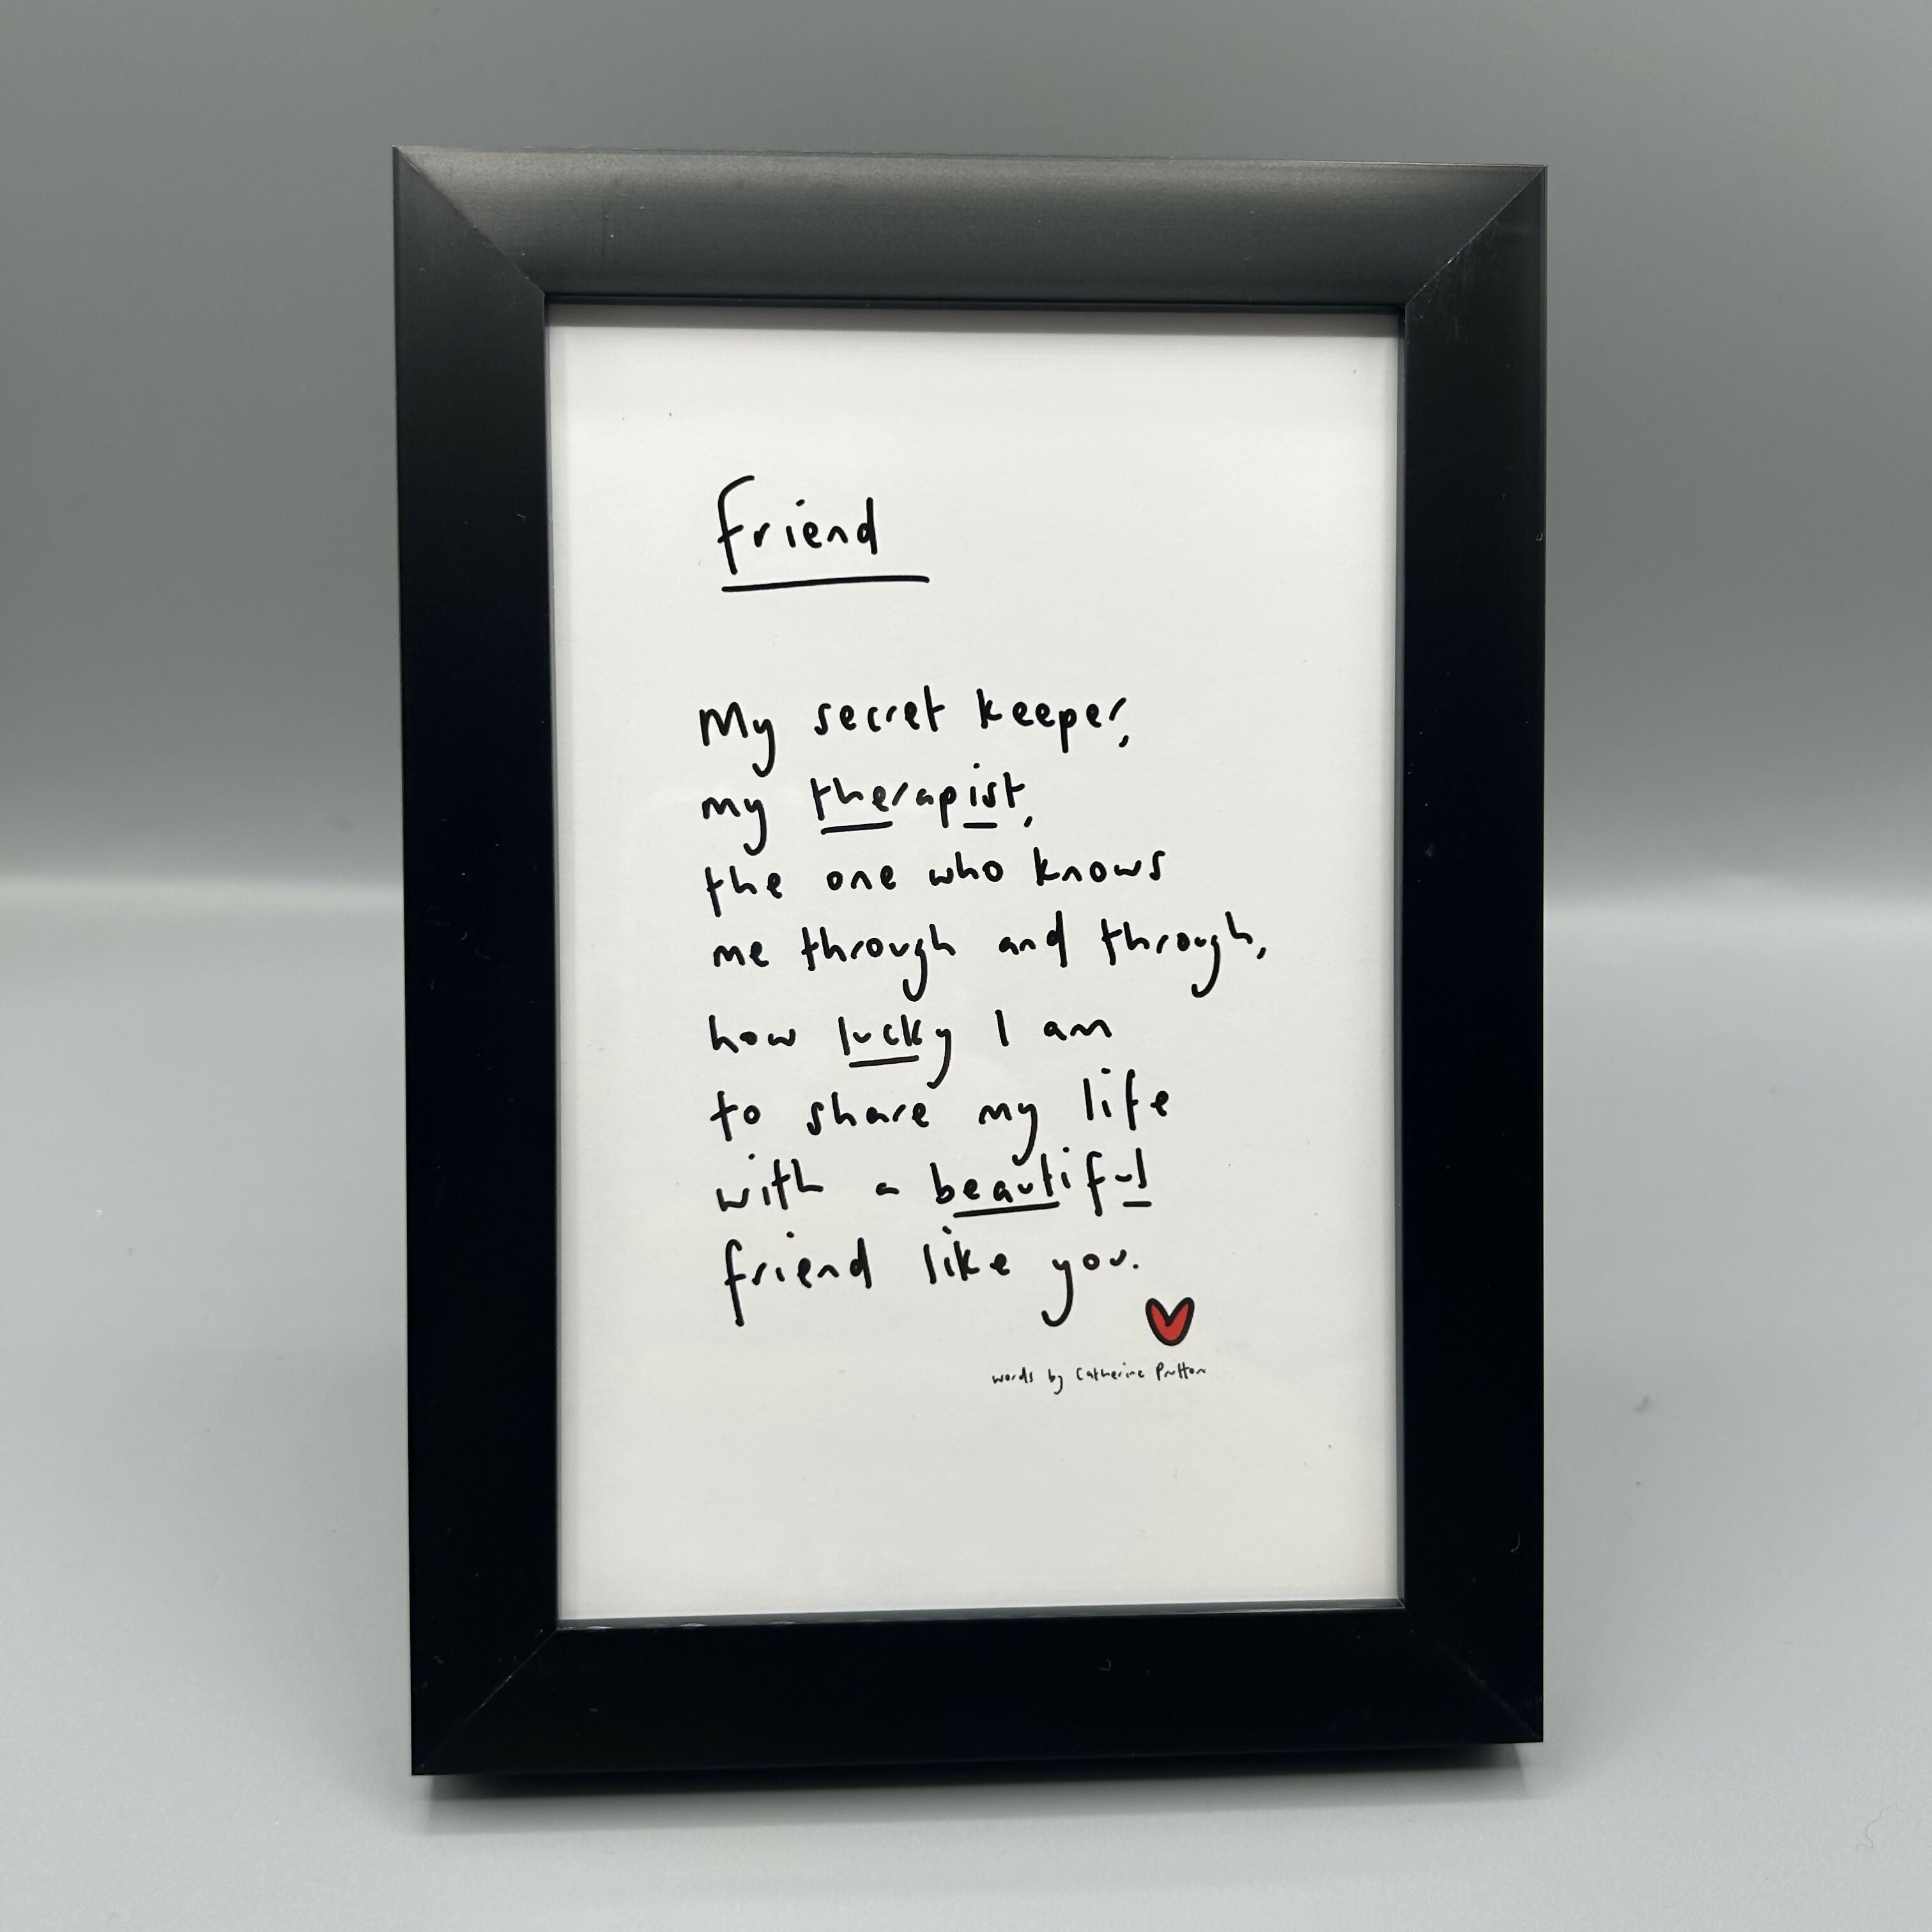 friend
My secret keeper,
my therapist,
the one who knows
me through and through,
how lucky I am
to share my life
with a beautiful
friend like you.
words by Catherine Prutton